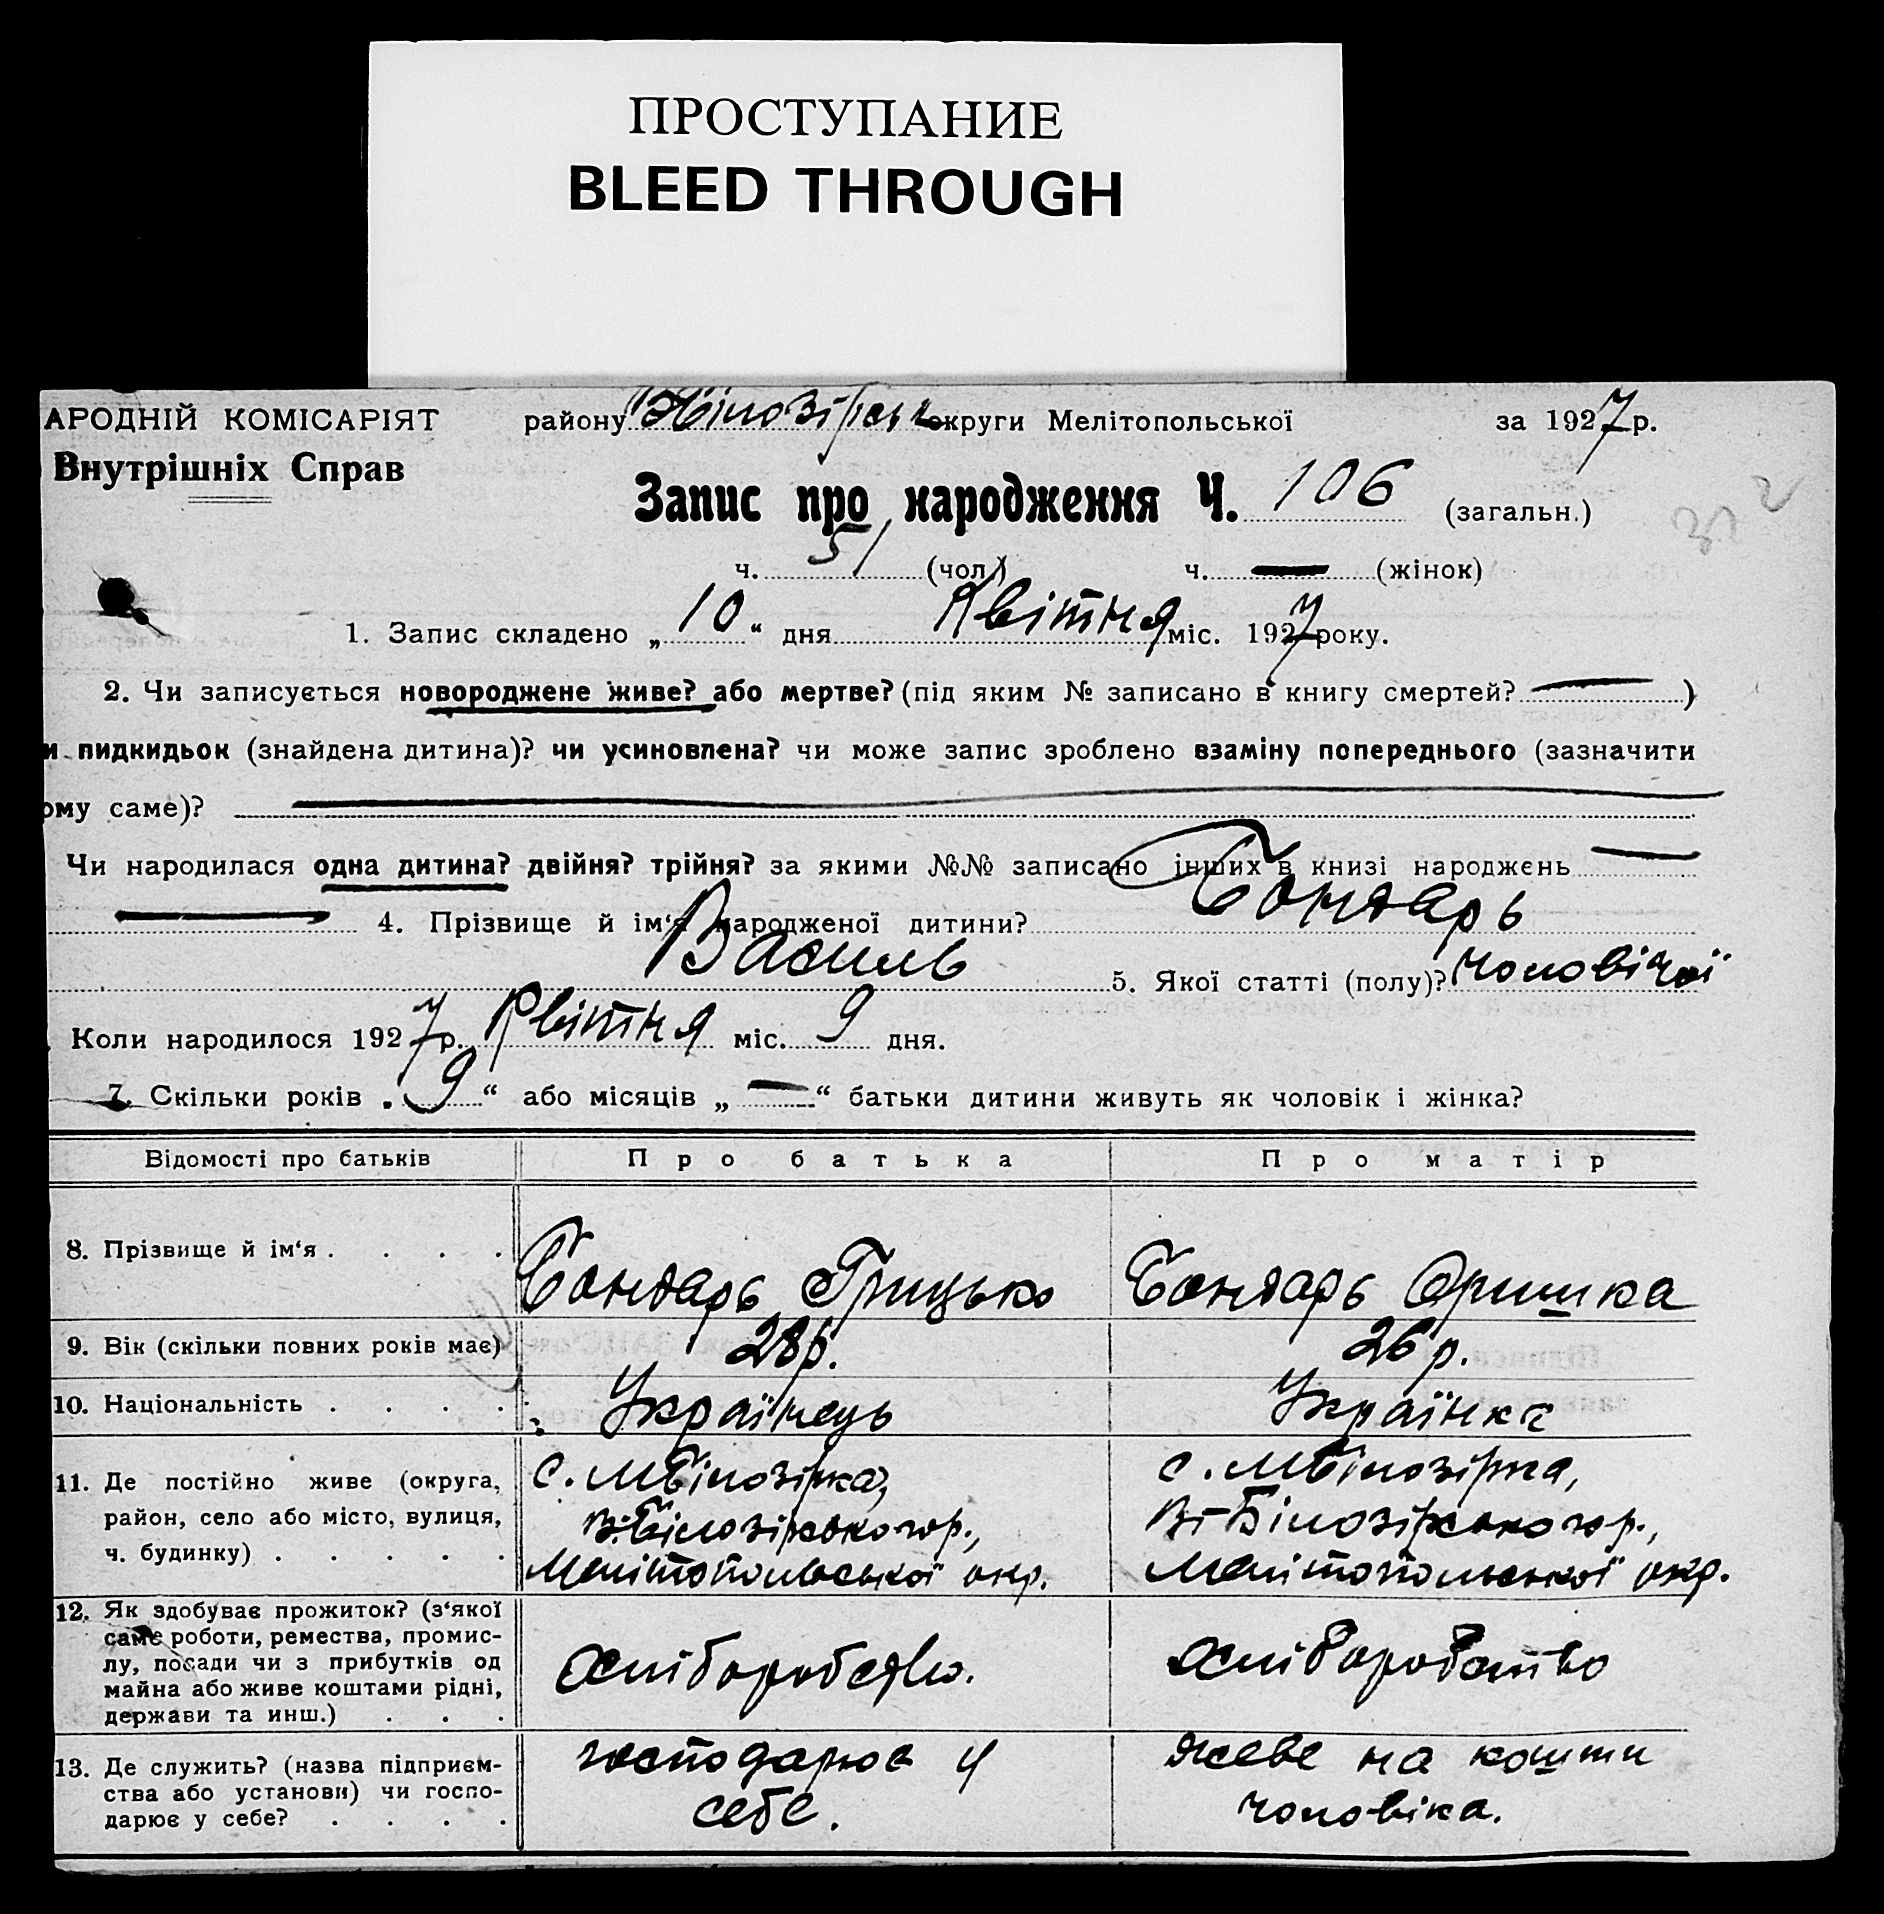 ПРОСТУПАНИЕ
BLEED THROUGH
АРОДНІЙ КОМІСАРІЯТ району округи Мелітопольської за 1927 р.
Внутрішніх Справ
Запис про народження Ч. 106 (загальн.)
ч. 51 (чол.) ч. — (жінок)
1. Запис складено „ 10 “ дня Квітня міс. 1927 року.
2. Чи записується новороджене живе? або мертве? (під яким № записано в книгу смертей? — )
и пидкидьок (знайдена дитина)? чи усиновлена? чи може запис зроблено взаміну попереднього (зазначити
ому саме)? —
Чи народилася одна дитина? двійня? трійня? за якими №№ записано інших в книзі народжень —
— 4. Прізвище й ім‘я народженої дитини? Бондарь
Василь 5. Якої статті (полу)? чоловічої
Коли народилося 1927 р. Квітня міс. 9 дня.
7. Скільки років „ 9 “ або місяців „ — “ батьки дитини живуть як чоловік і жінка?
Відомості про батьків Про батька Про матір
8. Прізвище й ім‘я . . . . Бондарь Грицько Бондарь Оришка
9. Вік (скільки повних років має) 28 р. 26 р.
10. Національність . . . . Українець Українка
11. Де постійно живе (округа, с. МБілозірка, с. МБілозірка,
район, село або місто, вулиця, В-Білозірського р., В-Білозірського р.,
ч. будинку) . . . . . Мелітопольської окр. Мелітопольської окр.
12. Як здобуває прожиток? (з‘якої
саме роботи, ремества, промис-
лу, посади чи з прибутків од хліборобство
майна або живе коштами рідні,
держави та инш.) . . .
13. Де служить? (назва підприєм- господарює у живе на кошти
ства або установи) чи госпо- себе. чоловіка.
дарює у себе? . . . .